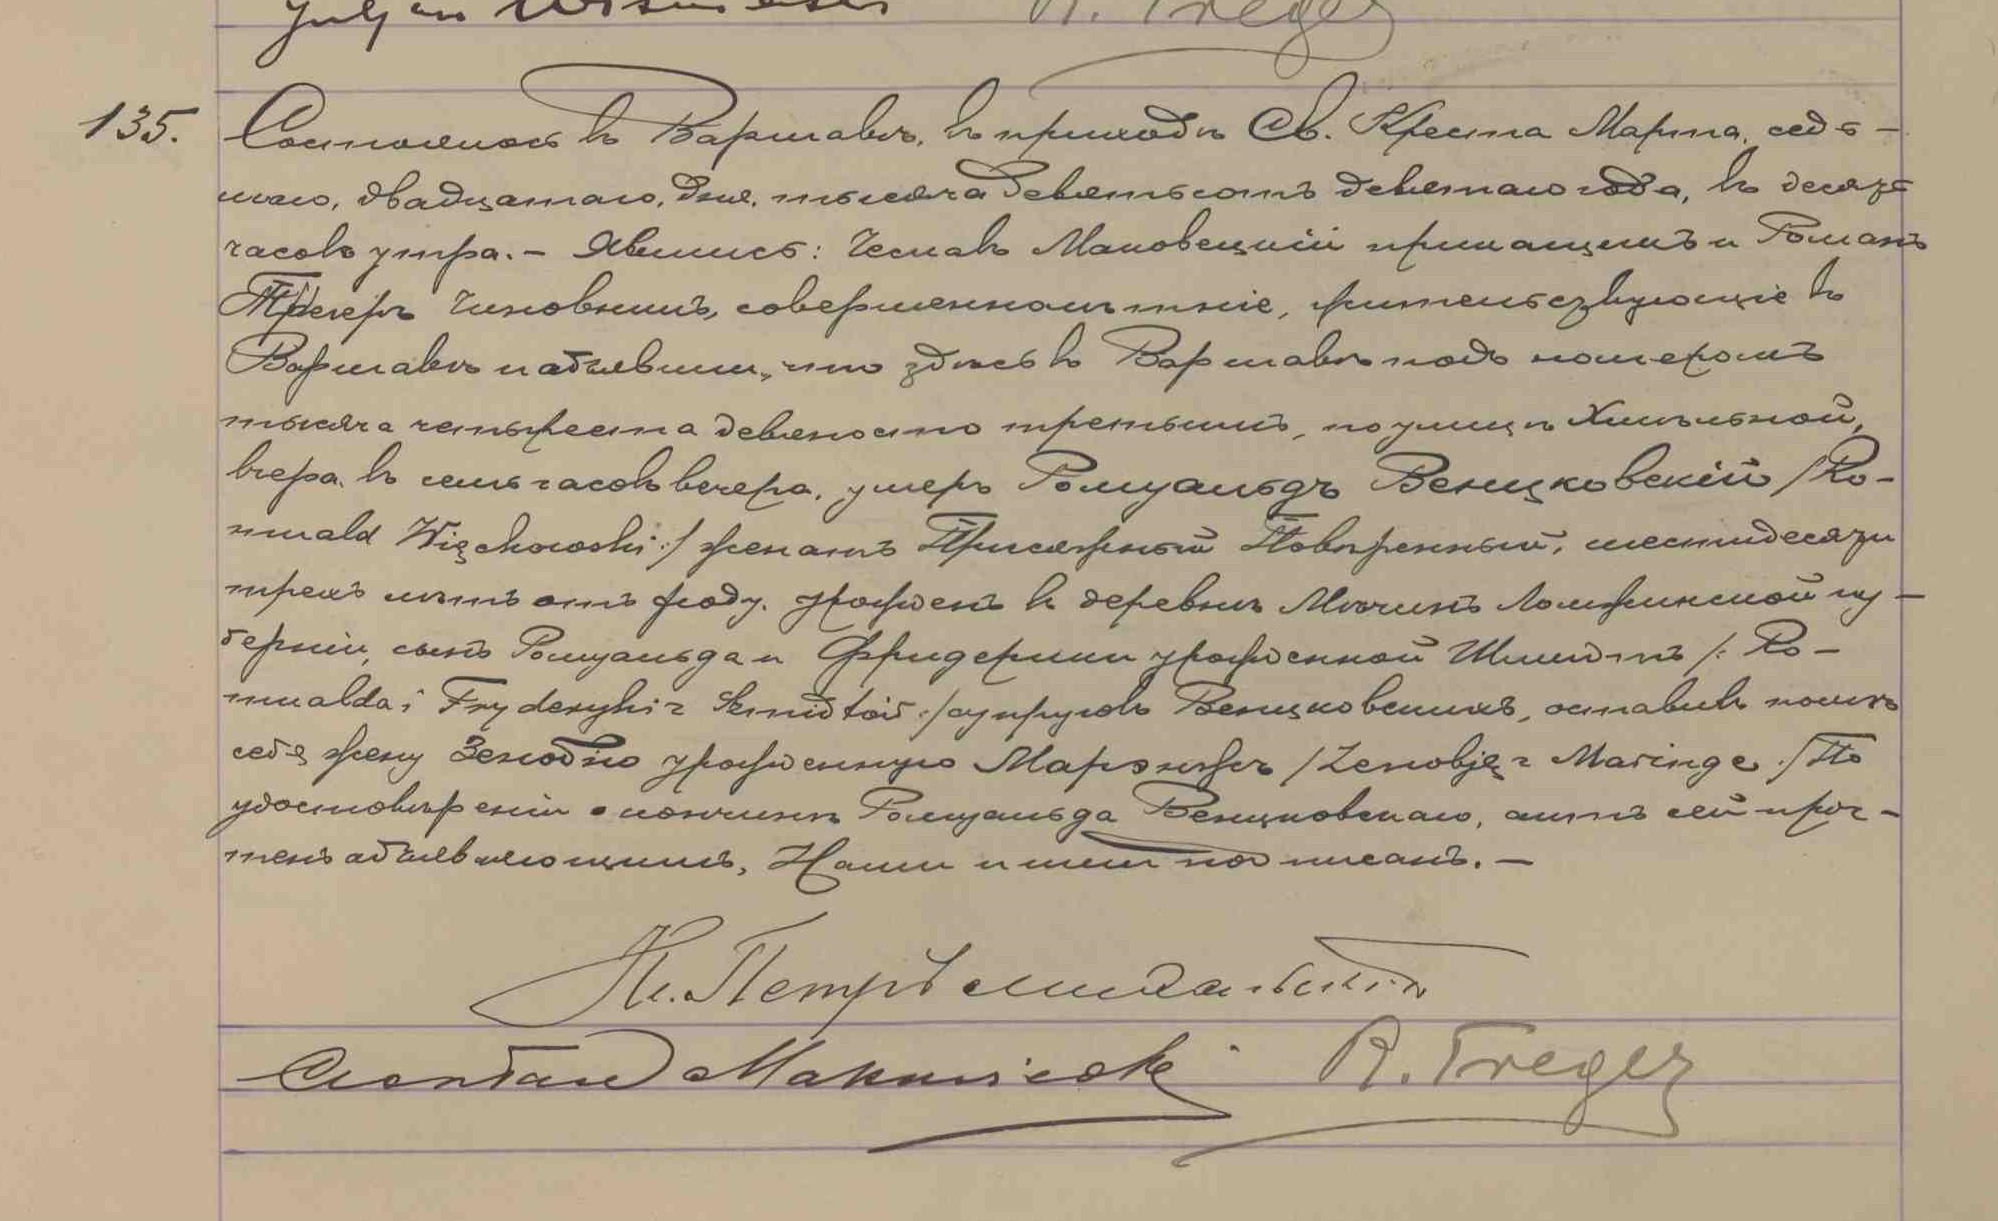 R. Treger
135. Состоялось въ Варшавѣ, въ приходѣ Св. Креста Марта, седь-
маго, двадцатаго, дня, тысяча девятьсотъ девятаго года, въ десять
часовъ утра. — Явились: Чеславъ Маковецкій прикащикъ и Романъ
Трегеръ чиновникъ, совершеннолѣтніе, жительствующіе въ
Варшавѣ и объявили, что здѣсь въ Варшавѣ подъ номеромъ
тысяча четыреста девяносто третьимъ, по улицѣ Хмѣльной,
вчера въ семь часовъ вечера, умеръ Ромуальдъ Венцковскій /Ro-
muald Więckowski:/ женатъ Присяжный Повѣренный, шестидесяти
трехъ лѣтъ отъ роду, урожденъ въ деревнѣ Ломжинской гу-
берніи, сынъ Ромуальда и Фридерики урожденной Шмидтъ /: Ro-
mualda i Fryderyki z Szmidtów :/ супруговъ Венцковскихъ, оставивъ послѣ
себя жену Зенобію урожденную Марэнже /Zenobję z Maringe :/ По
удостовѣреніи о кончинѣ Ромуальда Венцковскаго, актъ сей проч-
тенъ объявляющимъ, Нами и ими подписанъ. —
Кс. Петръ
Czesław Makowiecki R. Treger